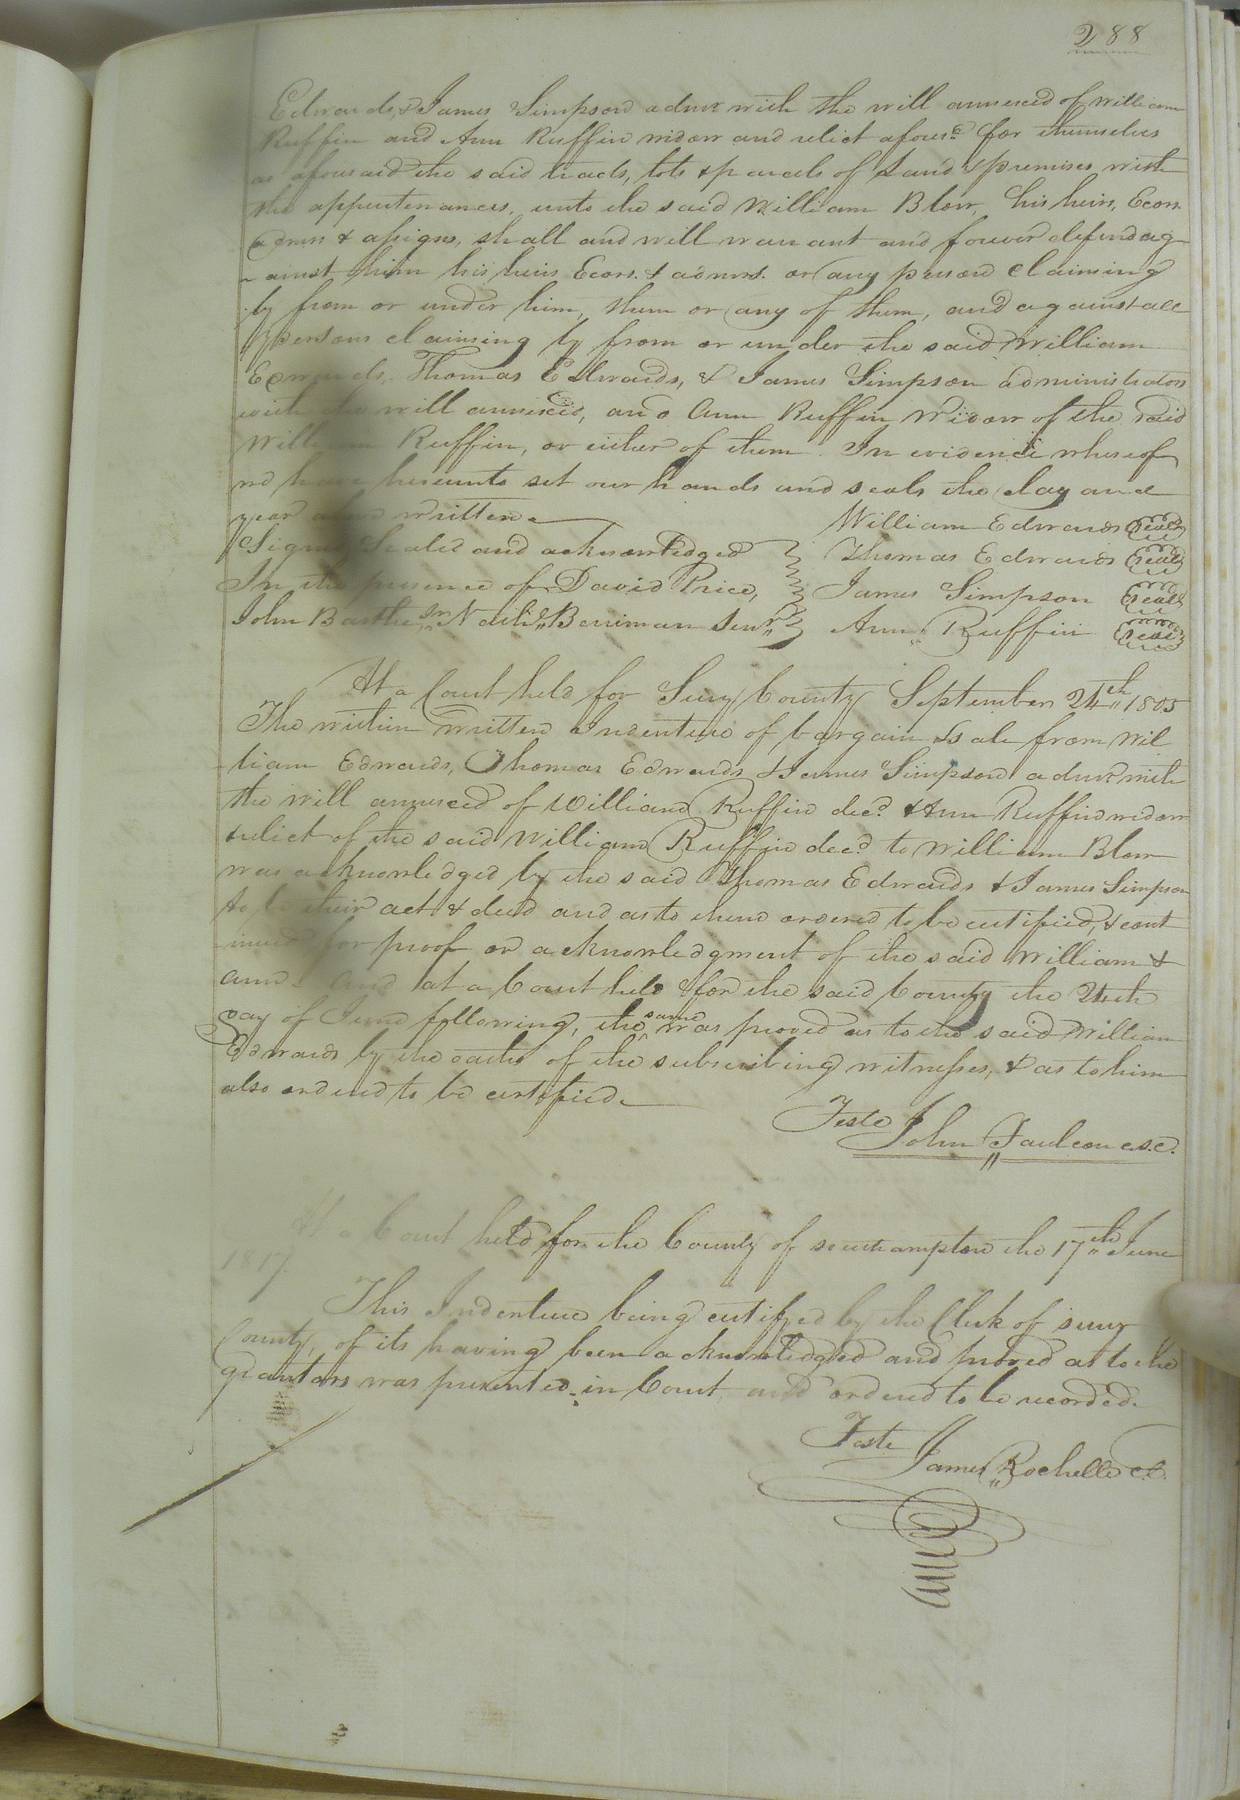 288
Edwards, & James Simpson admrs with the will annexed of William
Ruffin and Ann Ruffin widow and relict afores.d for themselves
as aforesaid the said tracts, lots & parcels of Land & premises with
the appertenances, unto the said William Blow, his heirs, Ecors.
admrs & assigns, shall and will warrant and forever defend ag-
-ainst him his heirs Ecors. & admrs. or any person claiming
by from or under him, them or any of them, and against all
persons claiming by from or under the said William
Edwards, Thomas Edwards, & James Simpson administrators
with the will annexed, and Ann Ruffin Widow of the said
William Ruffin, or either of them. In evidence whereof
we have hereunto set our hands and seals the day and
year above written
William Edwards (seal)
Signed Sealed and acknowledged
Thomas Edwards (seal)
In the presence of David Price,
James Simpson (seal)
John Berriman Senr.
Ann Ruffin (seal)
At a Court held for Surry County September 24th 1805
The within written Indenture of bargain & sale from Wil
liam Edwards, Thomas Edwards & James Simpson admrs with
the will annexed of William Ruffin dec.d & Ann Ruffin widow
& relict of the said William Ruffin dec.d to William Blow
was acknowledged by the said Thomas Edwards & James Simpson
to be their act & deed and as to them ordered to be certified, & cont
inued for proof or acknowledgment of the said William &
Ann. And at a Court held for the said County the 24th
day of June following, the same was proved as to the said William
Edwards by the oaths of the subscribing witnesses, & as to him
also ordered to be certified.
Teste
John Faulcon c.s.c.
At a Court held for the County of Southampton the 17th June
1817
This Indenture being certifyed by the Clerk of Surry
County, of its having been acknowledged and proved as to the
grantors was presented in Court and ordered to be recorded.
Teste
James Rochelle c.c.